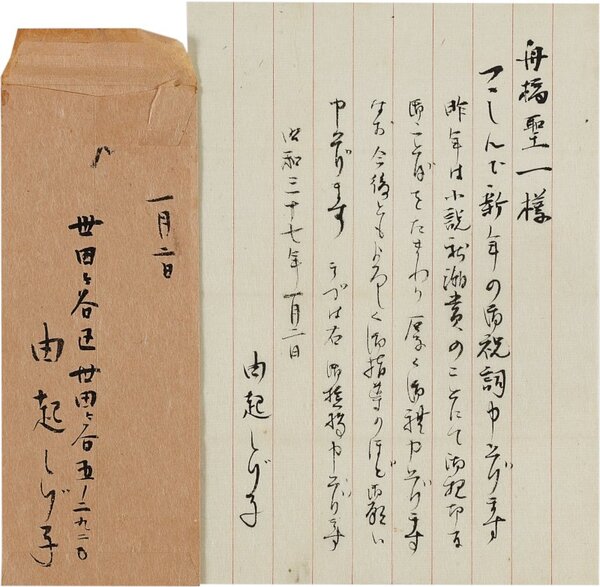 舟橋聖一様
つゝしんで新年の御祝詞申上げます
昨年は小説新潮賞のことにて御親切な
御ことばをたまわり厚く御礼申上げます
なお今後ともよろしく御指導のほど御願い
申上げます まづは右御挨拶申上げます
昭和三十七年一月二日
由起しげ子
一月二日
世田ヶ谷区世田ヶ谷五ノ二九二〇
由起しげ子